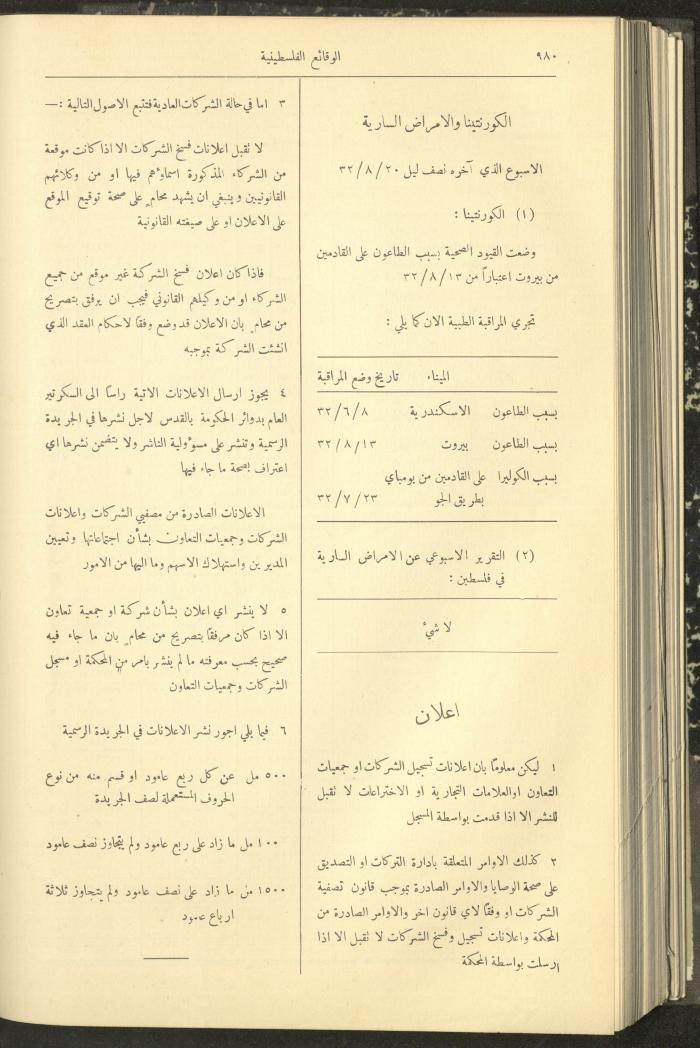 ٩٨٠
الوقائع الفلسطينية
الكورنتينا والامراض السارية
الاسبوع الذي آخره نصف ليل ٢٠ / ٨ / ٣٢
(١) الكورنتينا :
وضعت القيود الصحية بسبب الطاعون على القادمين
من بيروت اعتباراً من ١٣ / ٨ / ٣٢
تجري المراقبة الطبية الان كما يلي :
الميناء تاريخ وضع المراقبة
بسبب الطاعون الاسكندرية ٨ / ٦ / ٣٢
بسبب الطاعون بيروت ١٣ / ٨ / ٣٢
بسبب الكوليرا على القادمين من بومباي
بطريق الجو ٢٣ / ٧ / ٣٢
(٢) التقرير الاسبوعي عن الامراض السارية
في فلسطين :
لا شيء
اعلان
١ ليكن معلوماً بان اعلانات تسجيل الشركات او جمعيات
التعاون او العلامات التجارية او الاختراعات لا تقبل
للنشر الا اذا قدمت بواسطة المسجل
٢ كذلك الاوامر المتعلقة بادارة التركات او التصديق
على صحة الوصايا والاوامر الصادرة بموجب قانون تصفية
الشركات او وفقاً لاي قانون اخر والاوامر الصادرة من
المحكمة واعلانات تسجيل وفسخ الشركات لا تقبل الا اذا
ارسلت بواسطة المحكمة
٣ اما في حالة الشركات العادية فتتبع الاصول التالية :—
لا تقبل اعلانات فسخ الشركات الا اذا كانت موقعة
من الشركاء المذكورة اسماؤهم فيها او من وكلائهم
القانونيين وينبغي ان يشهد محامٍ على صحة توقيع الموقع
على الاعلان او على صيغته القانونية
فاذا كان اعلان فسخ الشركة غير موقع من جميع
الشركاء او من وكيلهم القانوني فيجب ان يرفق بتصريح
من محامٍ بان الاعلان قد وضع وفقاً لاحكام العقد الذي
انشئت الشركة بموجبه
٤ يجوز ارسال الاعلانات الاتية راساً الى السكرتير
العام بدوائر الحكومة بالقدس لاجل نشرها في الجريدة
الرسمية وتنشر على مسؤولية الناشر ولا يتضمن نشرها اي
اعتراف بصحة ما جاء فيها
الاعلانات الصادرة من مصفيي الشركات واعلانات
الشركات وجمعيات التعاون بشأن اجتماعاتها وتعيين
المديرين واستهلاك الاسهم وما اليها من الامور
٥ لا ينشر اي اعلان بشأن شركة او جمعية تعاون
الا اذا كان مرفقاً بتصريح من محامٍ بان ما جاء فيه
صحيح بحسب معرفته ما لم ينشر بامر من المحكمة او مسجل
الشركات وجمعيات التعاون
٦ فيما يلي اجور نشر الاعلانات في الجريدة الرسمية
٥٠٠ مل عن كل ربع عامود او قسم منه من نوع
الحروف المستعملة لصف الجريدة
١٠٠ مل ما زاد على ربع عامود ولم يتجاوز نصف عامود
١٥٠٠ مل ما زاد على نصف عامود ولم يتجاوز ثلاثة
ارباع عامود